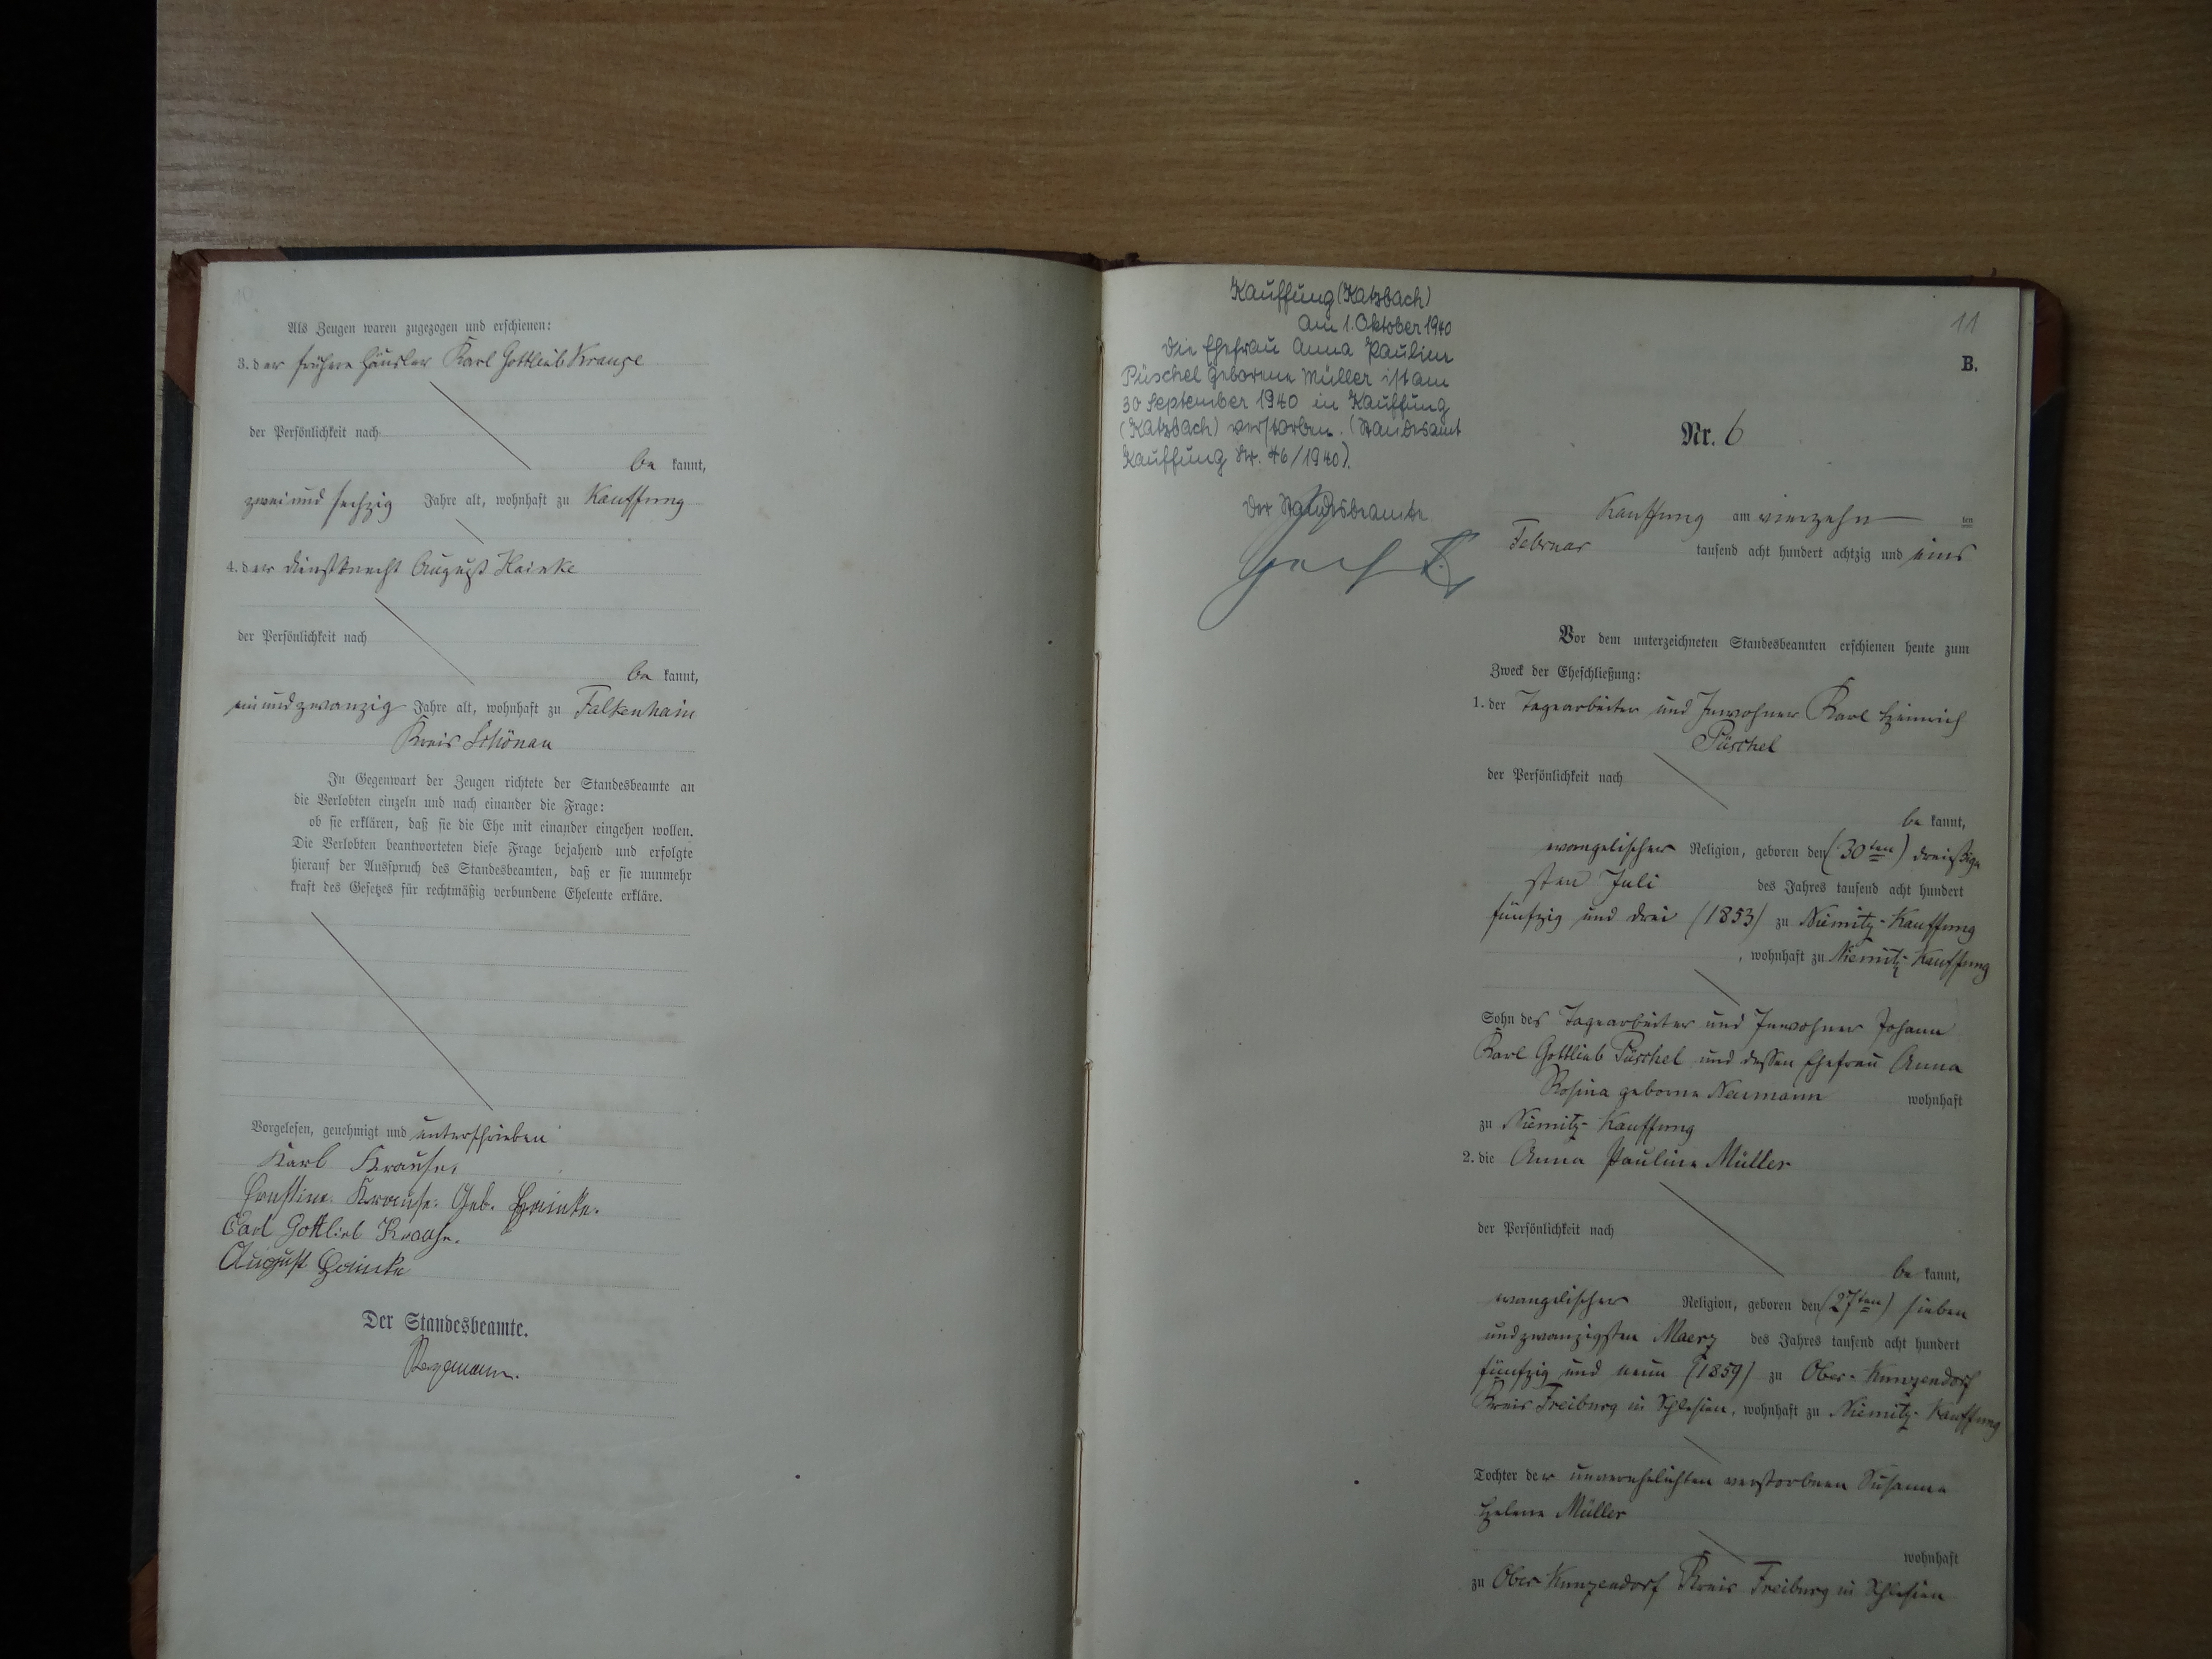 10
Als Zeugen waren zugezogen und erschienen:
3. der frühere Häusler Karl Gottlieb Krause
der Persönlichkeit nach
be kannt,
zwei und sechzig Jahre alt, wohnhaft zu Kauffung
4. der Dienstknecht August Hainke
der Persönlichkeit nach
be kannt,
ein und zwanzig Jahre alt, wohnhaft zu Falkenhain
Kreis Schönau
In Gegenwart der Zeugen richtete der Standesbeamte an
die Verlobten einzeln und nach einander die Frage:
ob sie erklären, daß sie die Ehe mit einander eingehen wollen.
Die Verlobten beantworteten diese Frage bejahend und erfolgte
hierauf der Ausspruch des Standesbeamten, daß er sie nunmehr
kraft des Gesetzes für rechtmäßig verbundene Eheleute erkläre.
Vorgelesen, genehmigt und unterschrieben
Karl Krause.
Ernstine Krause. Geb. Hainke.
Carl Gottlieb Krause.
August Hainke
Der Standesbeamte.
Kauffung (Katzbach)
am 1. Oktober 1940
Die Ehefrau Anna Pauline
Püschel geborene Müller ist am
30 September 1940 in Kauffung
(Katzbach) verstorben. (Standesamt
Kauffung Nr. 46/1940).
Der Standesbeamte
11
B.
Nr. 6
Kauffung am vierzehn ten
Februar tausend acht hundert achtzig und eins
Vor dem unterzeichneten Standesbeamten erschienen heute zum
Zweck der Eheschließung:
1. der Tagearbeiter und Inwohner Karl Heinrich
Püschel
der Persönlichkeit nach
be kannt,
evangelischer Religion, geboren den (30ten) dreißig
sten Juli des Jahres tausend acht hundert
fünfzig und drei (1853) zu Niemitz-Kauffung
, wohnhaft zu Niemitz-Kauffung
Sohn des Tagearbeiter und Inwohner Johann
Karl Gottlieb Püschel und dessen Ehefrau Anna
Rosina geborne Neumann wohnhaft
zu Niemitz-Kauffung
2. die Anna Pauline Müller
der Persönlichkeit nach
be kannt,
evangelischer Religion, geboren den (27ten) sieben
und zwanzigsten Maerz des Jahres tausend acht hundert
fünfzig und neun (1859) zu Ober-Kunzendorf
Kreis Freiburg in Schlesien, wohnhaft zu Niemitz-Kauffung
Tochter der unverehelichten verstorbnen Susanna
Helene Müller
wohnhaft
zu Ober-Kunzendorf Kreis Freiburg in Schlesien